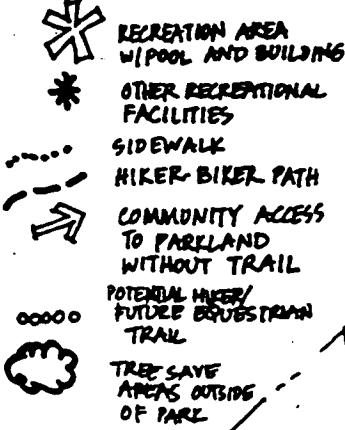 RECREATION AREA
W/POOL AND BUILDING
OTHER RECREATIONAL
FACILITIES
SIDEWALK
HIKER-BIKER PATH
COMMUNITY ACCESS
TO PARKLAND
WITHOUT TRAIL
POTENTIAL HIKER/
FUTURE EQUESTRIAN
TRAIL
TREE SAVE
AREAS OUTSIDE
OF PARK